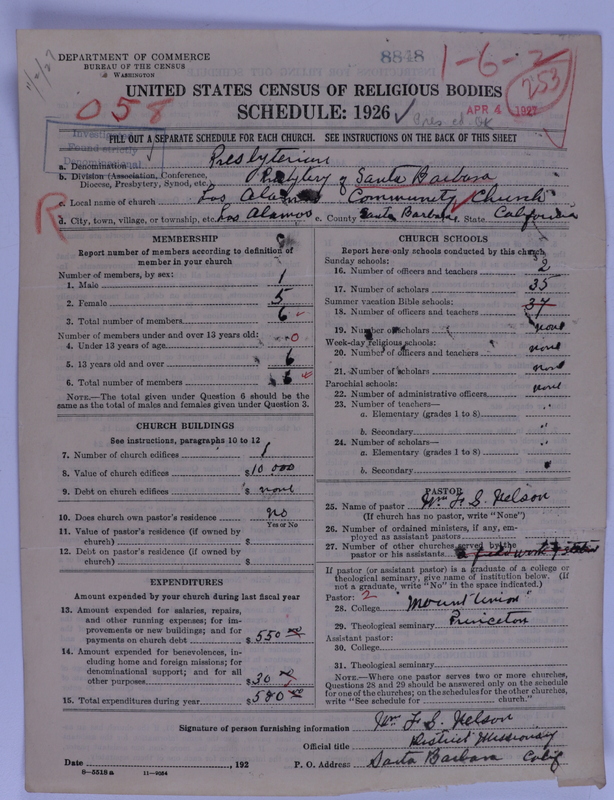 DEPARTMENT OF COMMERCE
BUREAU OF THE CENSUS
WASHINGTON
8848
1-6-2
253
UNITED STATES CENSUS OF RELIGIOUS BODIES
058
SCHEDULE: 1926 ✓
APR 4 1927
FILL OUT A SEPARATE SCHEDULE FOR EACH CHURCH. SEE INSTRUCTIONS ON THE BACK OF THIS SHEET
a. Denomination Presbyterian
b. Division (Association, Conference, Diocese, Presbytery, Synod, etc.) Presbytery of Santa Barbara
R
c. Local name of church Los Alamos Community Church
d. City, town, village, or township, etc. Los Alamos e. County Santa Barbara State California
MEMBERSHIP
Report number of members according to definition of
member in your church
Number of members, by sex:
1. Male 1
2. Female 5
3. Total number of members 6
Number of members under and over 13 years old:
4. Under 13 years of age 0
5. 13 years old and over 6
6. Total number of members 6
NOTE.—The total given under Question 6 should be the
same as the total of males and females given under Question 3.
CHURCH BUILDINGS
See instructions, paragraphs 10 to 12
7. Number of church edifices 1
8. Value of church edifices $10 000
9. Debt on church edifices $ none
10. Does church own pastor's residence no
Yes or No
11. Value of pastor's residence (if owned by
church) $
12. Debt on pastor's residence (if owned by
church) $
EXPENDITURES
Amount expended by your church during last fiscal year
13. Amount expended for salaries, repairs,
and other running expenses; for im-
provements or new buildings; and for
payments on church debt $ 550 00
14. Amount expended for benevolences, in-
cluding home and foreign missions; for
denominational support; and for all
other purposes $ 30 00
15. Total expenditures during year $ 580 00
CHURCH SCHOOLS
Report here only schools conducted by this church
Sunday schools:
16. Number of officers and teachers 2
17. Number of scholars 35
Summer vacation Bible schools:
37
18. Number of officers and teachers
19. Number of scholars none
Week-day religious schools:
20. Number of officers and teachers none
21. Number of scholars none
Parochial schools:
22. Number of administrative officers none
23. Number of teachers—
a. Elementary (grades 1 to 8) "
b. Secondary "
24. Number of scholars—
a. Elementary (grades 1 to 8)
b. Secondary "
PASTOR
25. Name of pastor Wm F. S. Nelson
(If church has no pastor, write "None")
26. Number of ordained ministers, if any, em-
ployed as assistant pastors
27. Number of other churches served by the
pastor or his assistants
If pastor (or assistant pastor) is a graduate of a college or
theological seminary, give name of institution below. (If
not a graduate, write "No" in the space indicated.)
Pastor: 2
28. College "Mount Union"
29. Theological seminary Princeton
Assistant pastor:
30. College
31. Theological seminary
NOTE.—Where one pastor serves two or more churches,
Questions 28 and 29 should be answered only on the schedule
for one of the churches; on the schedules for the other churches,
write "See schedule for church."
Signature of person furnishing information Wm F. S. Nelson
Official title District Missionary
Date , 192 P. O. Address Santa Barbara Calif
8-5518 a 11-9064